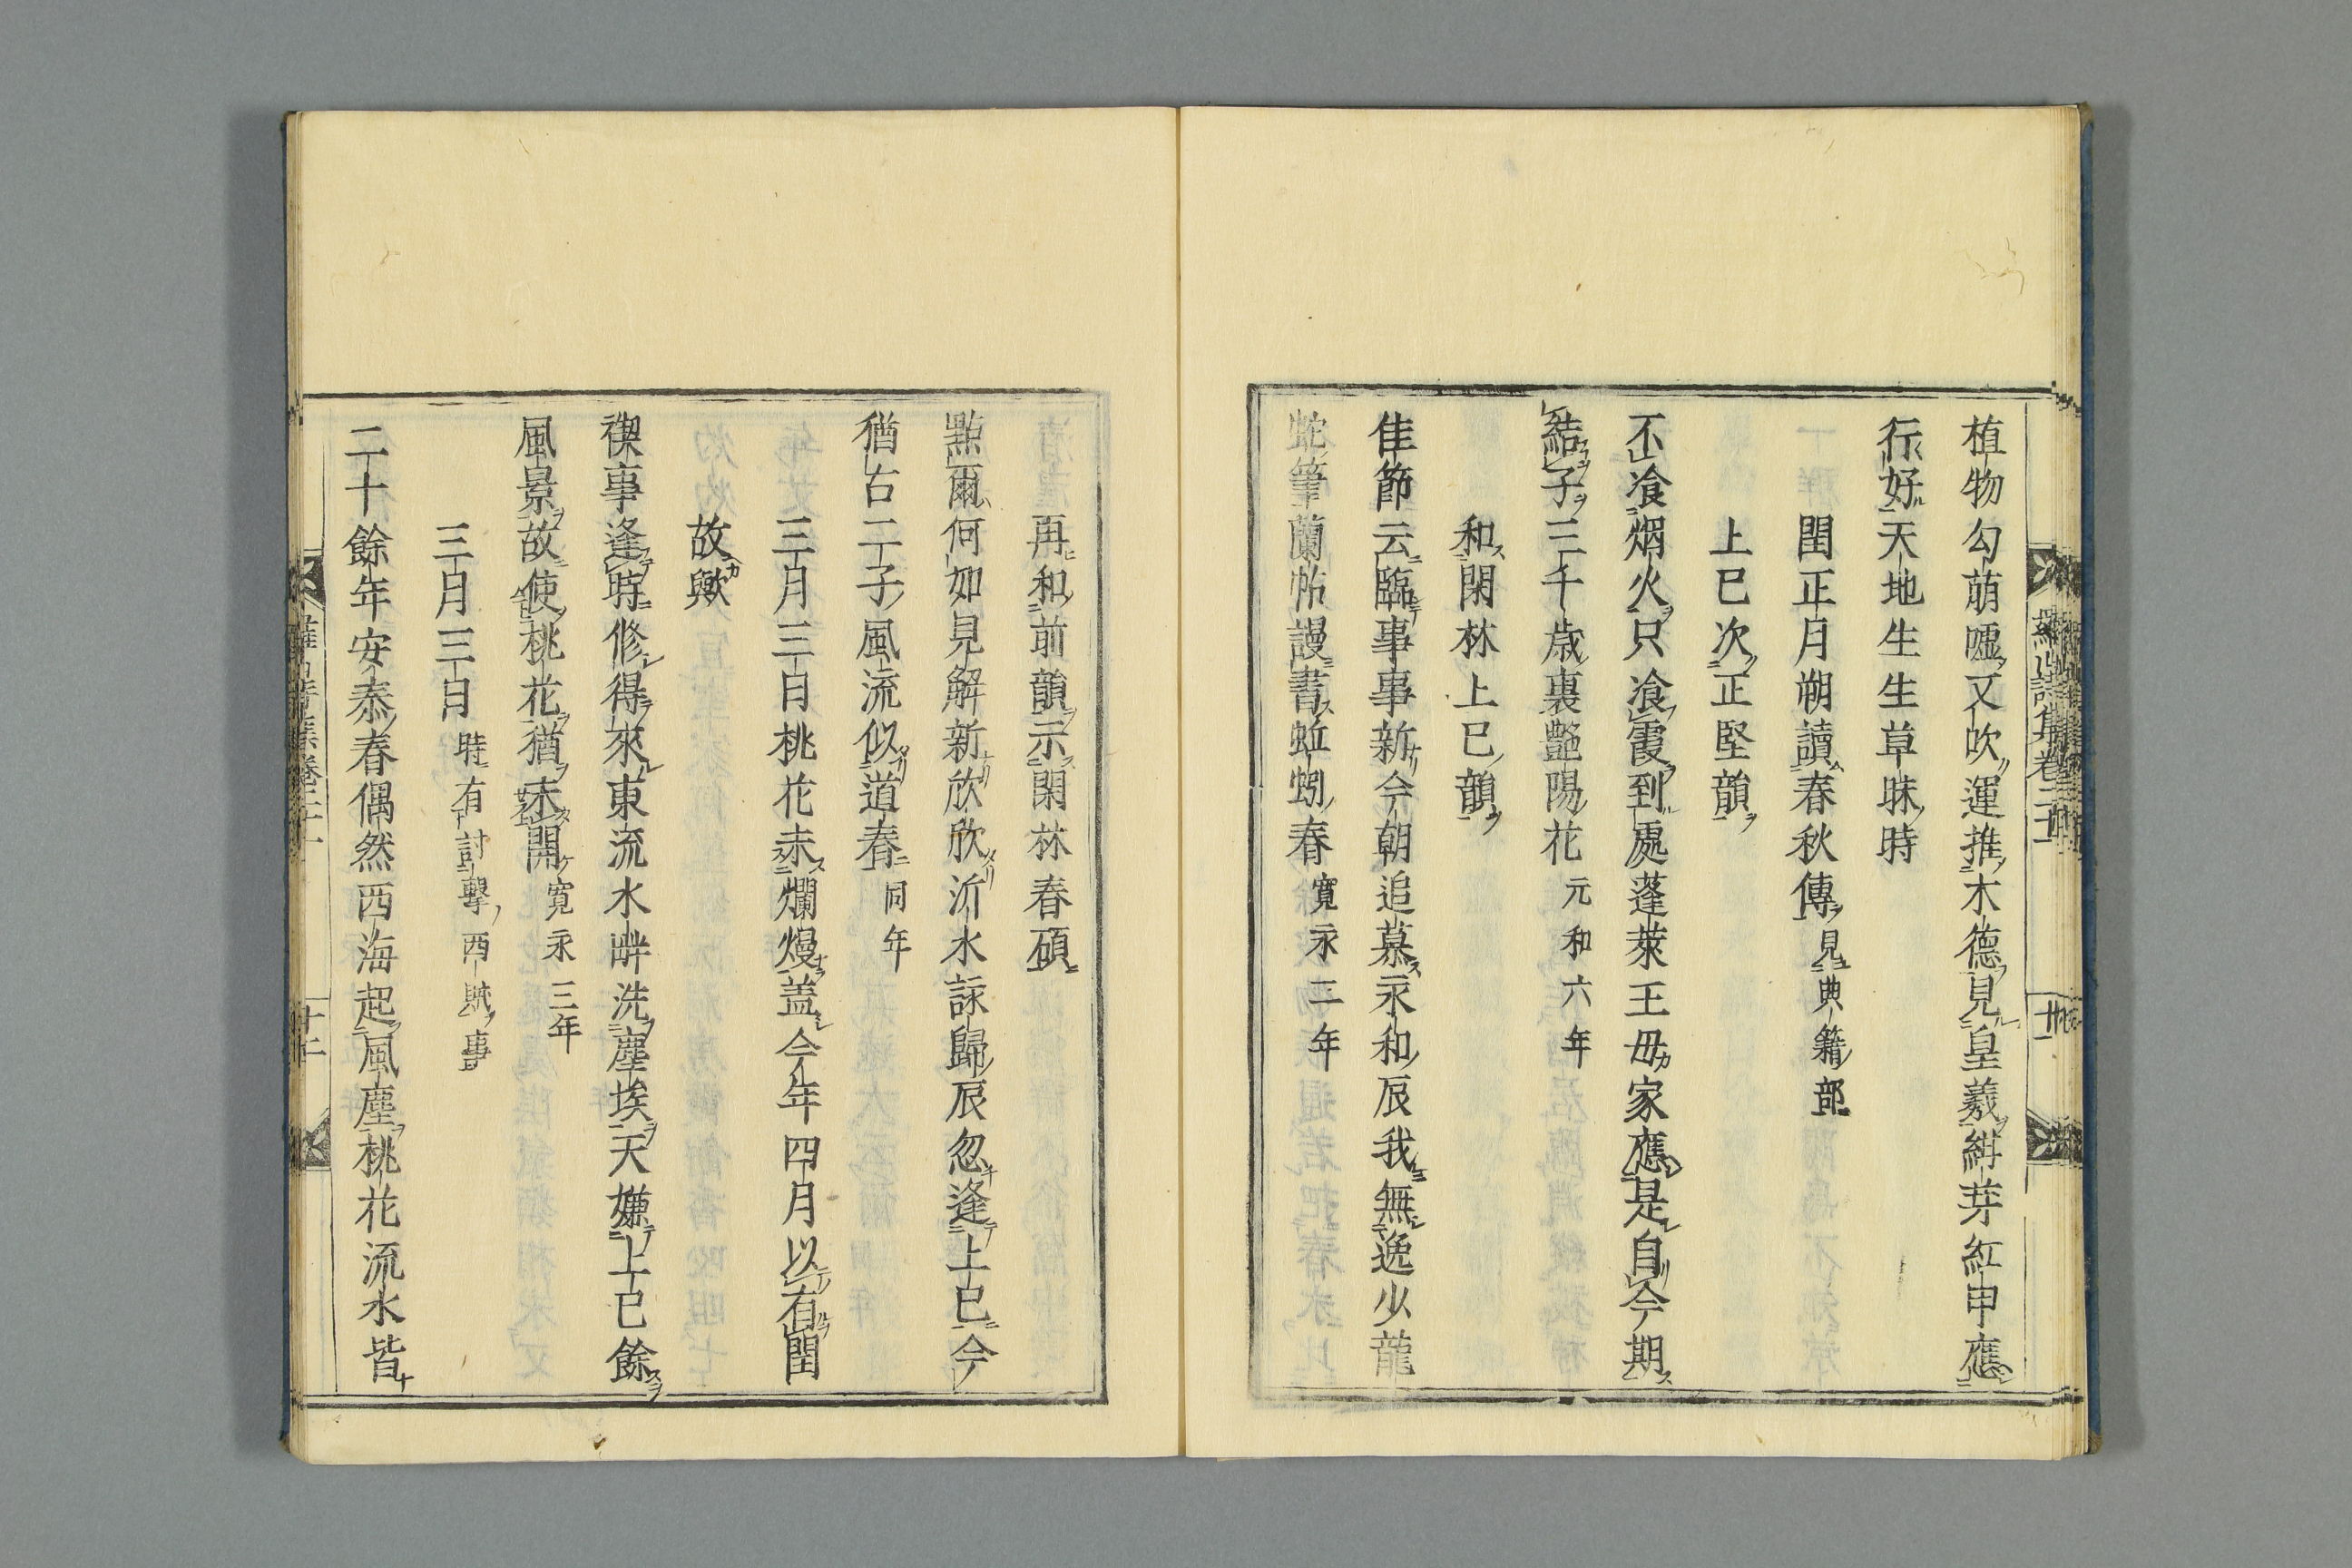 植物勾萠嘘又吹運推木德見皇羲紺芽紅甲應
行好天地生生草昧時
閏正月朔讀春秋傳見典籍部
上巳次正堅韻
不飡烟火只飡霞到處蓬萊王母家應是自今期
結子三千歳裏艷陽花元和六年
和閑林上巳韻
佳節云臨事事新今朝追慕永和辰我無逸少龍
蛇筆蘭帖謾書蚯蚓春寛永二年
再和前韻示閑林春碩
點爾何如見解新欣欣沂水詠歸辰忽逢上巳今
猶古二子風流似道春同年
三月三日桃花未爛熳蓋今年四月以有閏
故歟
禊事逢時修得來東流水畔洗塵埃天嫌上巳餘
風景故使桃花猶未開寛永三年
三月三日時有討擊西賊事
二十餘年安泰春偶然西海起風塵桃花流水皆